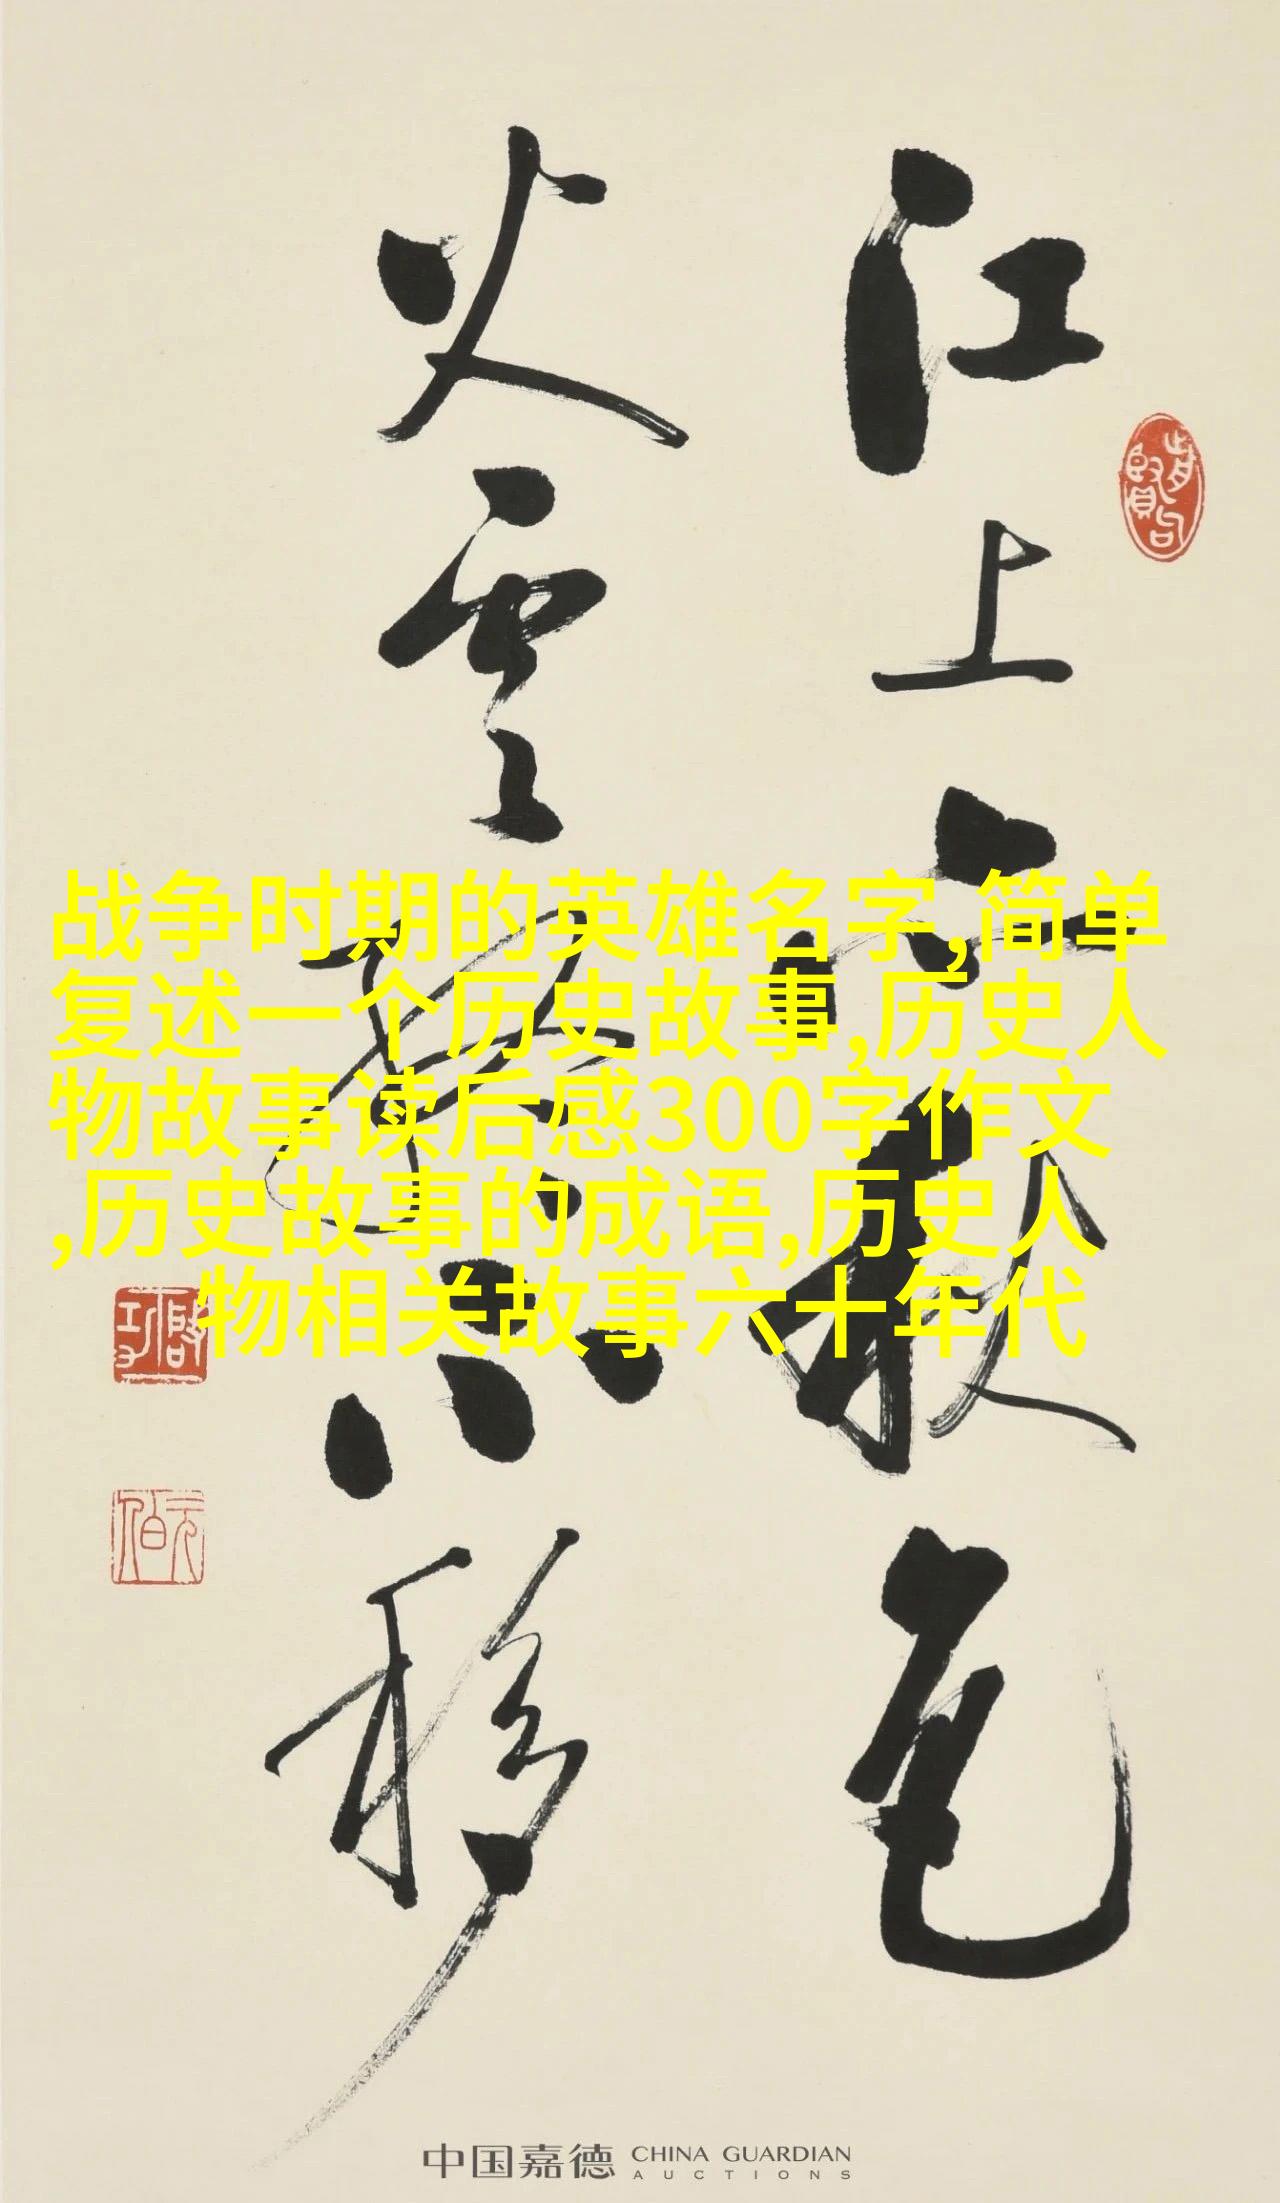 江上亦秋色
火雲終不移
战争时期的英雄名字,简单
复述一个历史故事,历史人
物故事读后感300字作文
,历史故事的成语,历史人
物相关故事六十年代
啓功
元白
中国嘉德 CHINA GUARDIAN
AUCTIONS